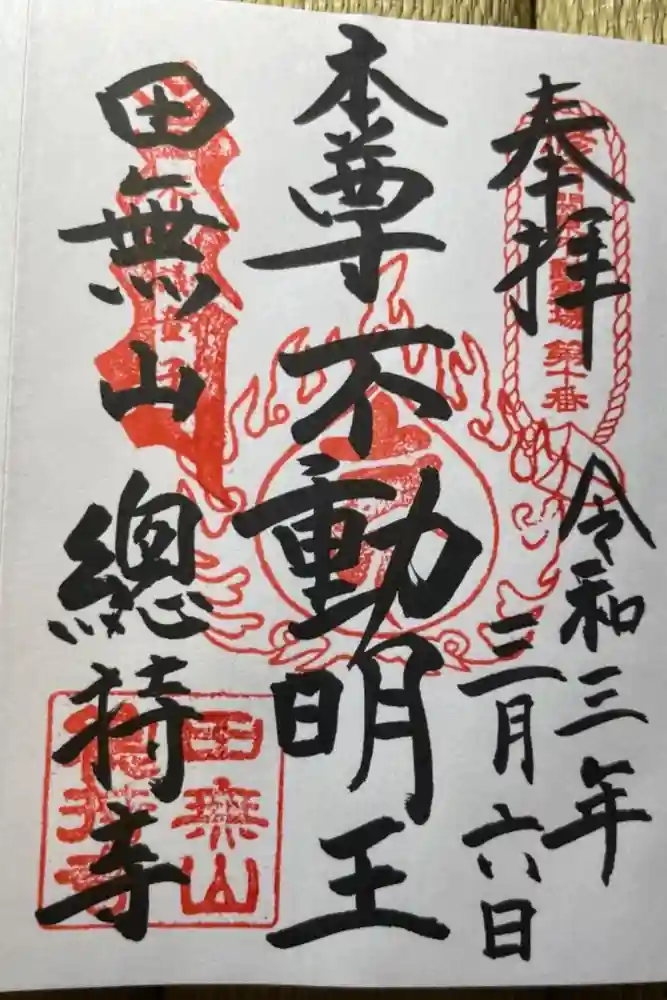 奉拝
令和三年
三月六日
本尊不動明王
田無山
總持寺
第十番
田無山
總持寺